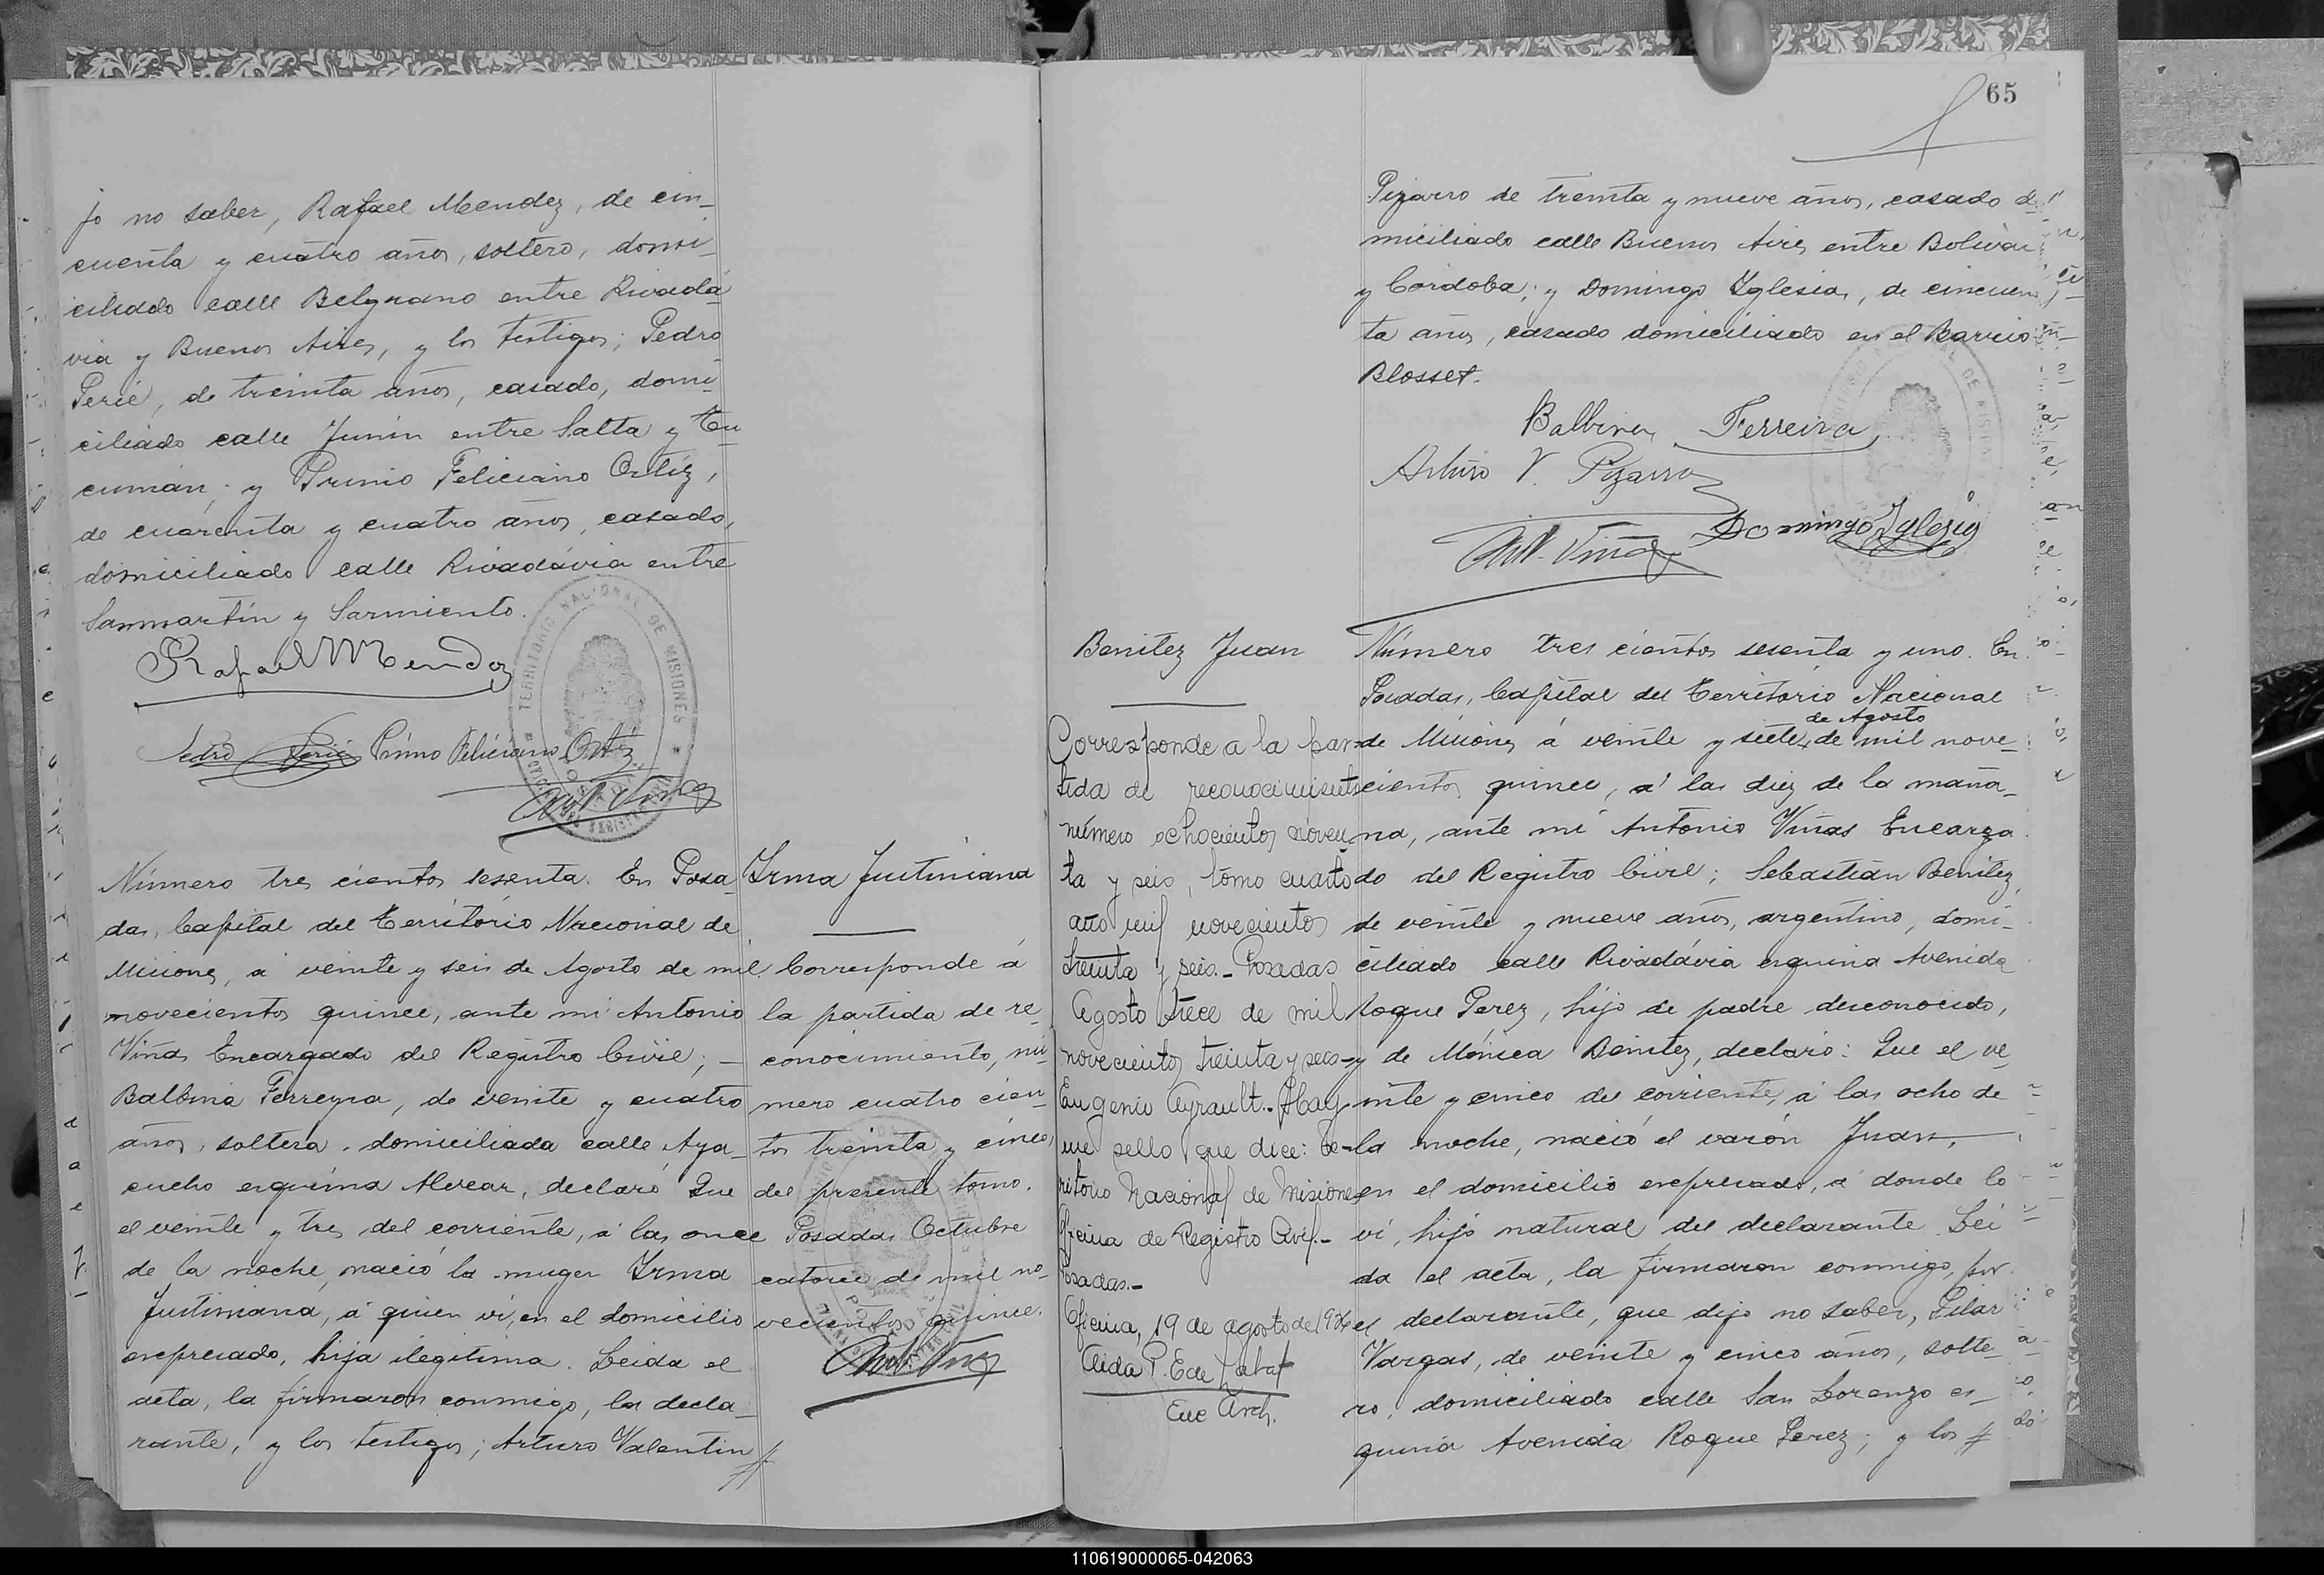 jo no saber, Rafael Mendez, de cin_
cuenta y cuatro años, soltero, domi_
ciliado calle Belgrano entre Rivada_
via y Buenos Aires, y los testigos; Pedro
Perié, de treinta años, casado, domi_
ciliado calle Junin entre Salta y Tu_
cumán; y Primo Feliciano Ortíz,
de cuarenta y cuatro años, casado,
domiciliado calle Rivadávia entre
Sanmartín y Sarmiento.
Rafael Mendez
Pedro Perié Primo Feliciano Ortíz
TERRITORIO NACIONAL DE MISIONES
Ant. Viñas
Número tres cientos sesenta. En Posa
das, Capital del Território Nacional de
Misiones, á veinte y seis de Agosto de mil
novecientos quince, ante mi Antonio
Viñas Encargado del Registro Civil; _
Balbina Ferreyra, de veinte y cuatro
años, soltera, domiciliada calle Aya_
cucho esquina Alvear, declaró Que
el veinte y tres del corriente, á las once
de la noche nació la muger Irma
Justiniana, á quien ví, en el domicilio
expresado, hija ilegitima. Leida el
acta, la firmaron conmigo, la decla_
rante, y los testigos; Arturo Valentin #
Irma Justiniana
Corresponde á
la partida de re_
conocimiento, nú_
mero cuatro cien_
tos treinta y cinco,
del presente tomo.
Posadas Octubre
catorce de mil no_
vecientos quince.
Ant. Viñas
65
Pizarro de treinta y nueve años, casado do
miciliado calle Buenos Aires entre Bolivar
y Córdoba; y Domingo Yglesias, de cincuen_
ta años, casado domiciliado en el Barrio
Blosset.
Balbina Ferreira
Arturo V. Pizarro
Domingo Yglesia
Ant. Viñas
Benitez Juan
Corresponde a la par-
tida de reconocimiento
número ochocientos noven
ta y seis, tomo cuarto
año mil novecientos
treinta y seis.- Posadas
Agosto trece de mil
novecientos treinta y seis-
Eugenio Ayrault.- Hay
un sello que dice: Te-
rritorio Nacional de Misiones
Oficina de Registro Civil.-
Posadas.-
Oficina, 19 de agosto de 1936
Aida P. E de
Enc Arch.
Número tres cientos sesenta y uno. En
Posadas, Capital del Território Nacional
de Agosto
de Misiones á veinte y siete, de mil nove_
cientos quince, á las diez de la maña_
na, ante mi Antonio Viñas Encarga
do del Registro Civil; Sebastián Benitez,
de veinte y nueve años, argentino, domi_
ciliado calle Rivadávia esquina Avenida
Roque Perez, hijo de padre desconocido,
y de Mónica Benitez, declaró: Que el ve_
inte y cinco del corriente, á las ocho de
la noche, nació el varón Juan,
en el domicilio expresado, á donde lo
ví, hijo natural del declarante. Lei
da el acta, la firmaron conmigo, por
el declarante, que dijo no saber, Pilar
Vargas, de veinte y cinco años, solte_
ro, domiciliado calle San Lorenzo es_
quina Avenida Roque Perez; y los #
110619000065-042063